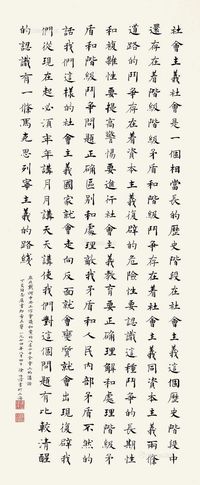 社會主義社會是一個相當長的歷史階段在社會主義這個歷史階段中
還存在着階級階級矛盾和階級鬥爭存在着社會主義同資本主義兩條
道路的鬥爭存在着資本主義復辟的危險性要認識這種鬥爭的長期性
和複雜性要提高警惕要進行社會主義教育要正確理解和處理階級矛
盾和階級鬥爭問題正確區別和處理敵我矛盾和人民內部矛盾不然的
話我們這樣的社會主義國家就會走向反面就會變質就會出現復辟我
們從現在起必須年年講月月講天天講使我們對這個問題有比較清醒
的認識有一條馬克思列寧主義的路線
在北戴河中央工作會議和黨的八屆十中全會上的講話